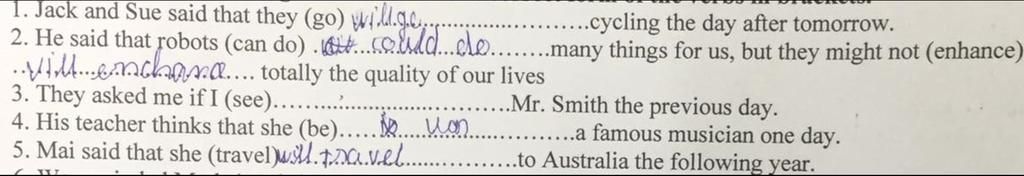 1. Jack and Sue said that they (go) will go..............................cycling the day after tomorrow.
2. He said that robots (can do) ..could..do........many things for us, but they might not (enhance)
..will..enchana.... totally the quality of our lives
3. They asked me if I (see)........................................Mr. Smith the previous day.
4. His teacher thinks that she (be).....................a famous musician one day.
5. Mai said that she (travel)will.travel..................to Australia the following year.